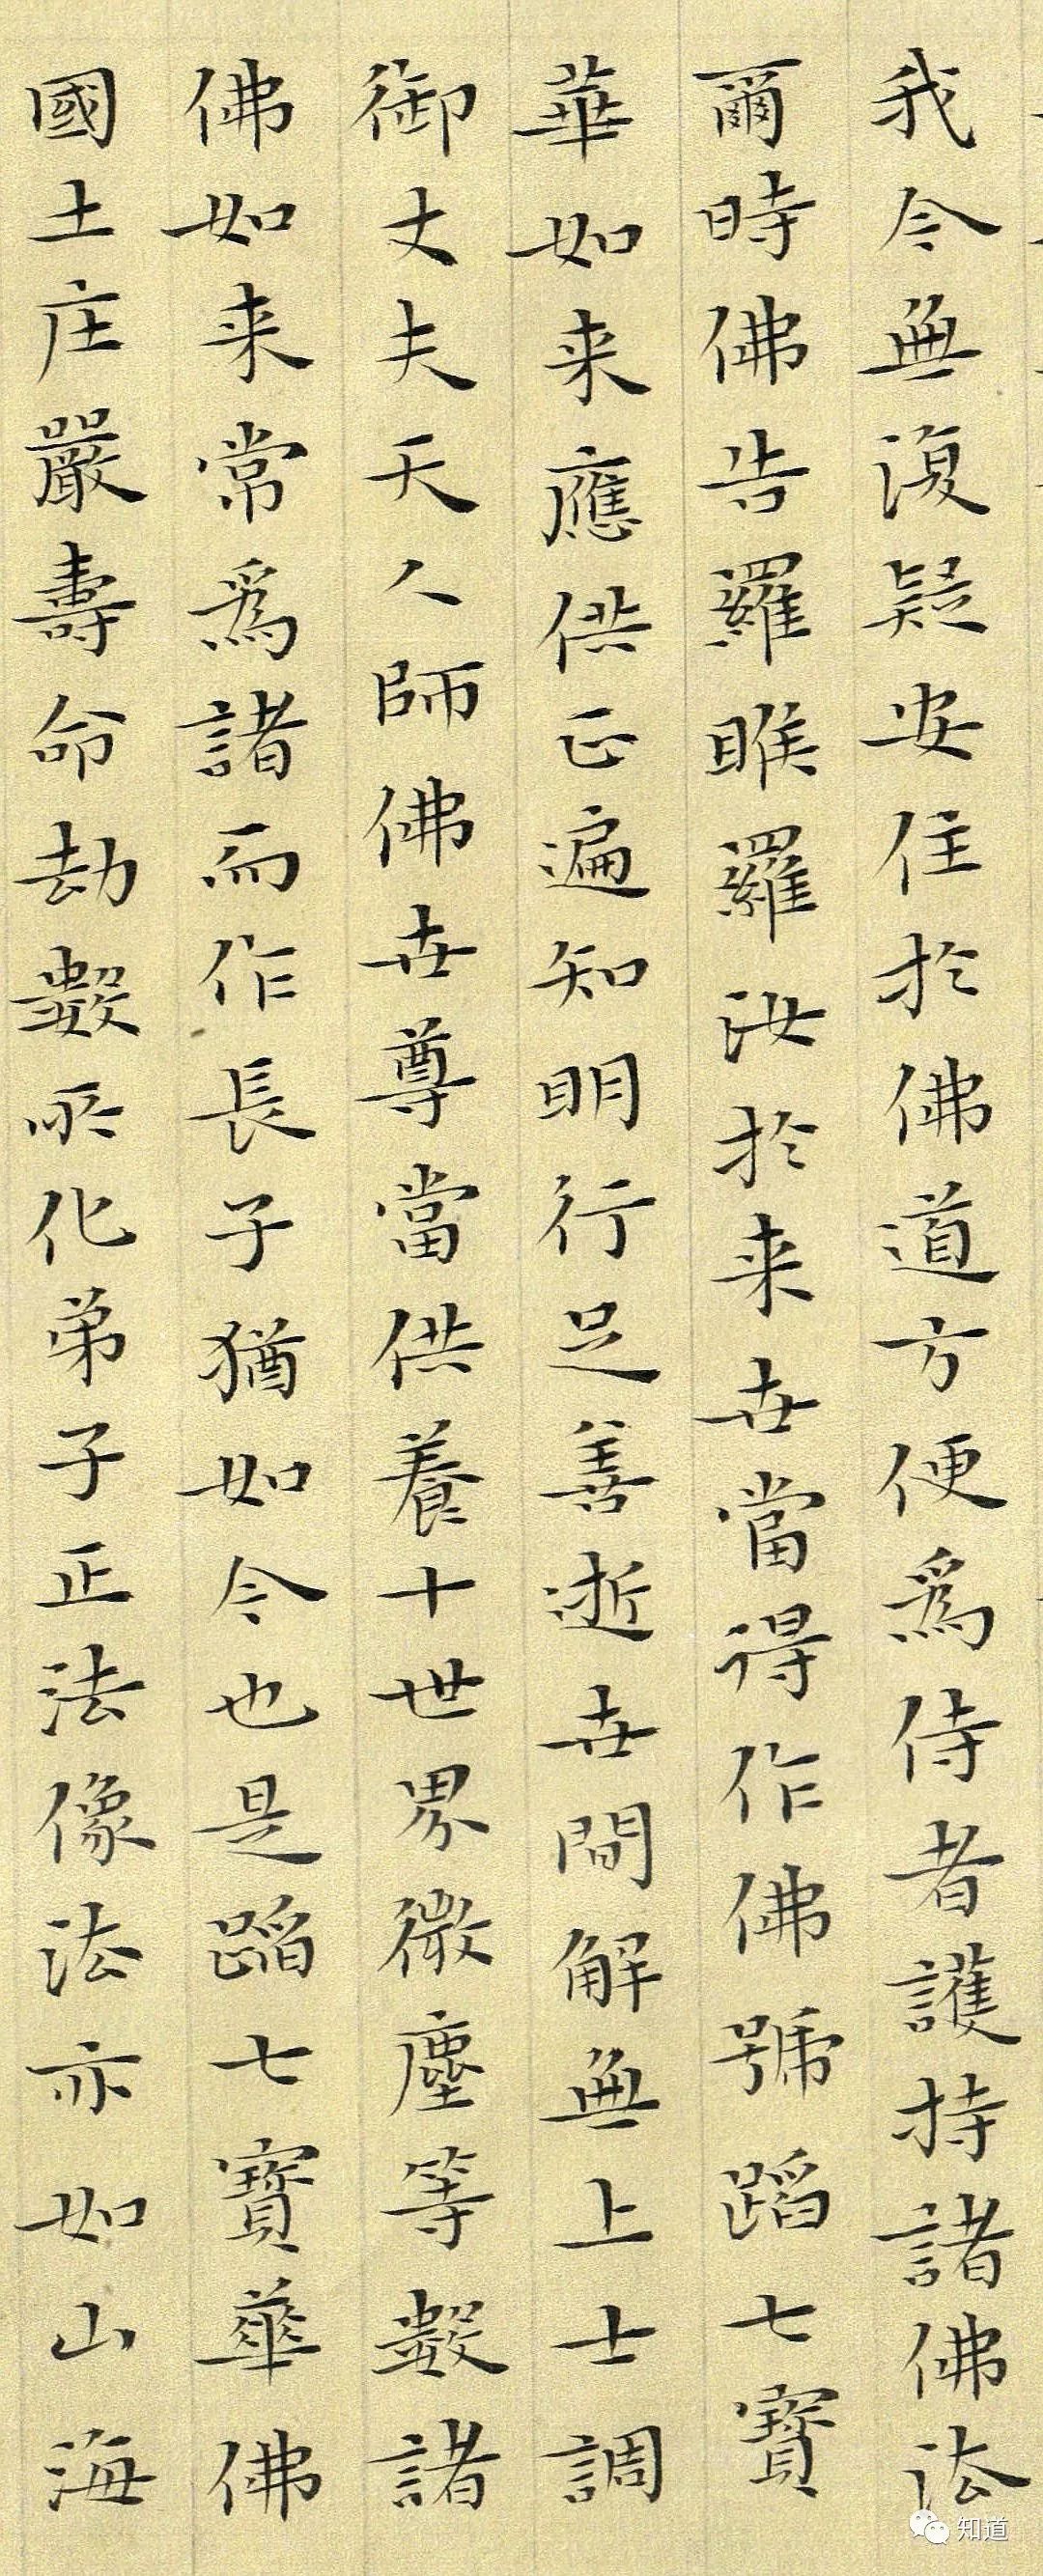 我今無復疑安住於佛道方便爲侍者護持諸佛法
爾時佛告羅睺羅汝於来世當得作佛號蹈七寶
華如来應供正遍知明行足善逝世間解無上士調
御丈夫天人師佛世尊當供養十世界微塵等數諸
佛如来常爲諸而作長子猶如今也是蹈七寶華佛
國土庄嚴壽命劫數所化弟子正法像法亦如山海
知道